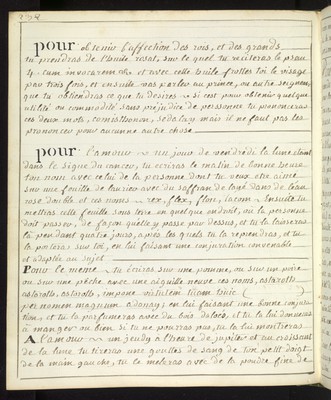 278
pour obtenir l'affection des rois, et des grands
tu prendras de l'huile rosat, sur le quel tu reciteras le psau.
4. cum invocarem &c et avec cette huile frottes toi le visage
par trois fois, et ensuite vas parler au prince, ou autre seigneur
que tu obtiendras ce que tu desires si cest pour obtenir quelque
utilité ou commodité sans prejudice de personne tu prononceras
ces deux mots, sedalay mais il ne faut pas les
prononcer pour aucunne autre chose
pour l'amour un jour de vendredi la lune etant
dans le signe du cancer, tu ecriras le matin de bonne heure
ton nom avec celui de la personne dont tu veux etre aimé
sur une feuille de laurier avec du saffran de l'eau
rose double et ces noms rex, flex, ensuite tu
mettras cette feuille sous terre en quelque endroit, ou la personne
doit passer, de façon quelle y passe par dessus, et tu la laisseras
la pendant quatre jours, apres les quels tu la reprendras, et tu
la porteras sur toi, en lui faisant une conjuration convenable
et adaptée au sujet
Pour le meme tu ecriras sur une pomme, ou sur un poire
ou sur une pêche avec une aiguille neuve ces noms, astarolt
(        )
per nomen magnum en lui faisant une bonne conjura
tion, et tu la parfumeras avec du bois daloes, et tu la lui donneras
à manger ou bien si tu ne pourras pas, tu la lui montreras
A l'amour un jeudy a l'heure de jupiter et au croissant
de la lune tu tireras une goutte de sang de ton petit doigt
de la main gauche, tu la meleras avec de la poudre fine de